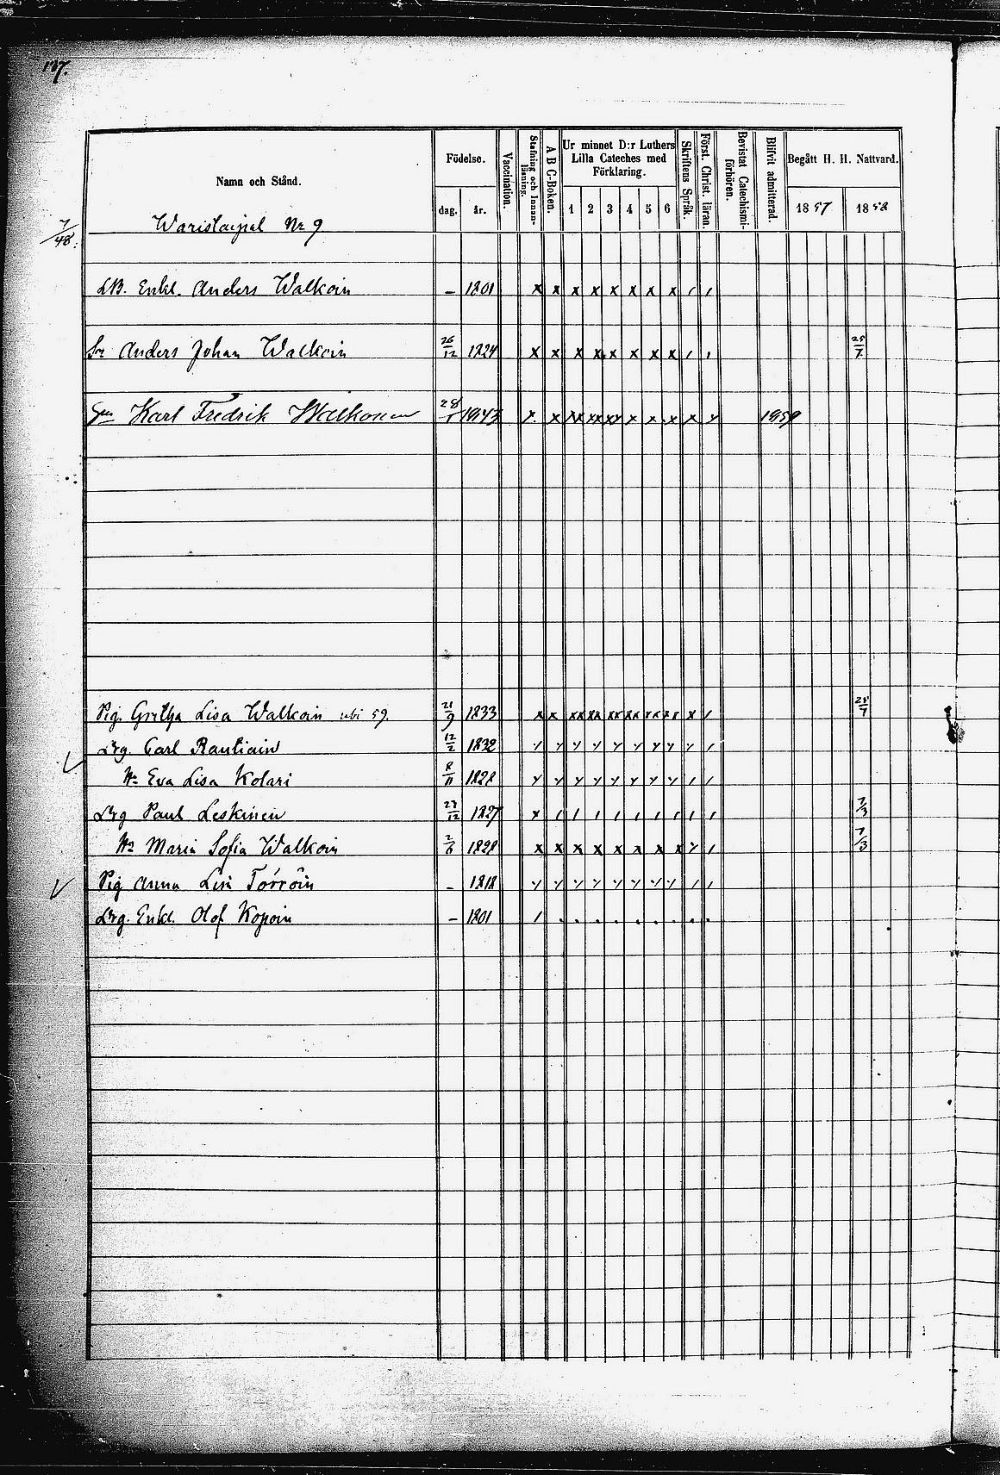 137.
Namn och Stånd.
Födelse.
dag.
år.
Vaccination.
Stafning och Innan-
läsning.
A B C-Boken.
Ur minnet D:r Luthers
Lilla Cateches med
Förklaring.
1 2 3 4 5 6
Skriftens Språk.
Först. Christ. läran.
Bevistat Catechismi-
förhören.
Blifvit admitterad.
Begått H. H. Nattvard.
1857 1858
7/48.
Waristaipal Nr 9
Enkl. Anders Walkoin – 1801 x x x x x x x x
Anders Johan Walkoin 26/12 1824 x x x x x x x x 25/7
Karl Fredrik Walkonen 28/1 1843 x x x x x x x x x x 1859
Pig. Gretha Lisa Walkoin ubi 59. 21/9 1833 x x x x x x x x x 25/7
Drg. Carl Rautiain 12/2 1832
Hu Eva Lisa Kolari 8/11 1828
Drg Paul Leskinein 27/12 1827 x 7/3
Hu Maria Sofia Walkoin 2/6 1828 x x x x x x x x 7/3
Pig Anna Lisi Törröin – 1818
Drg. Enkl. Olof Kopoin – 1801